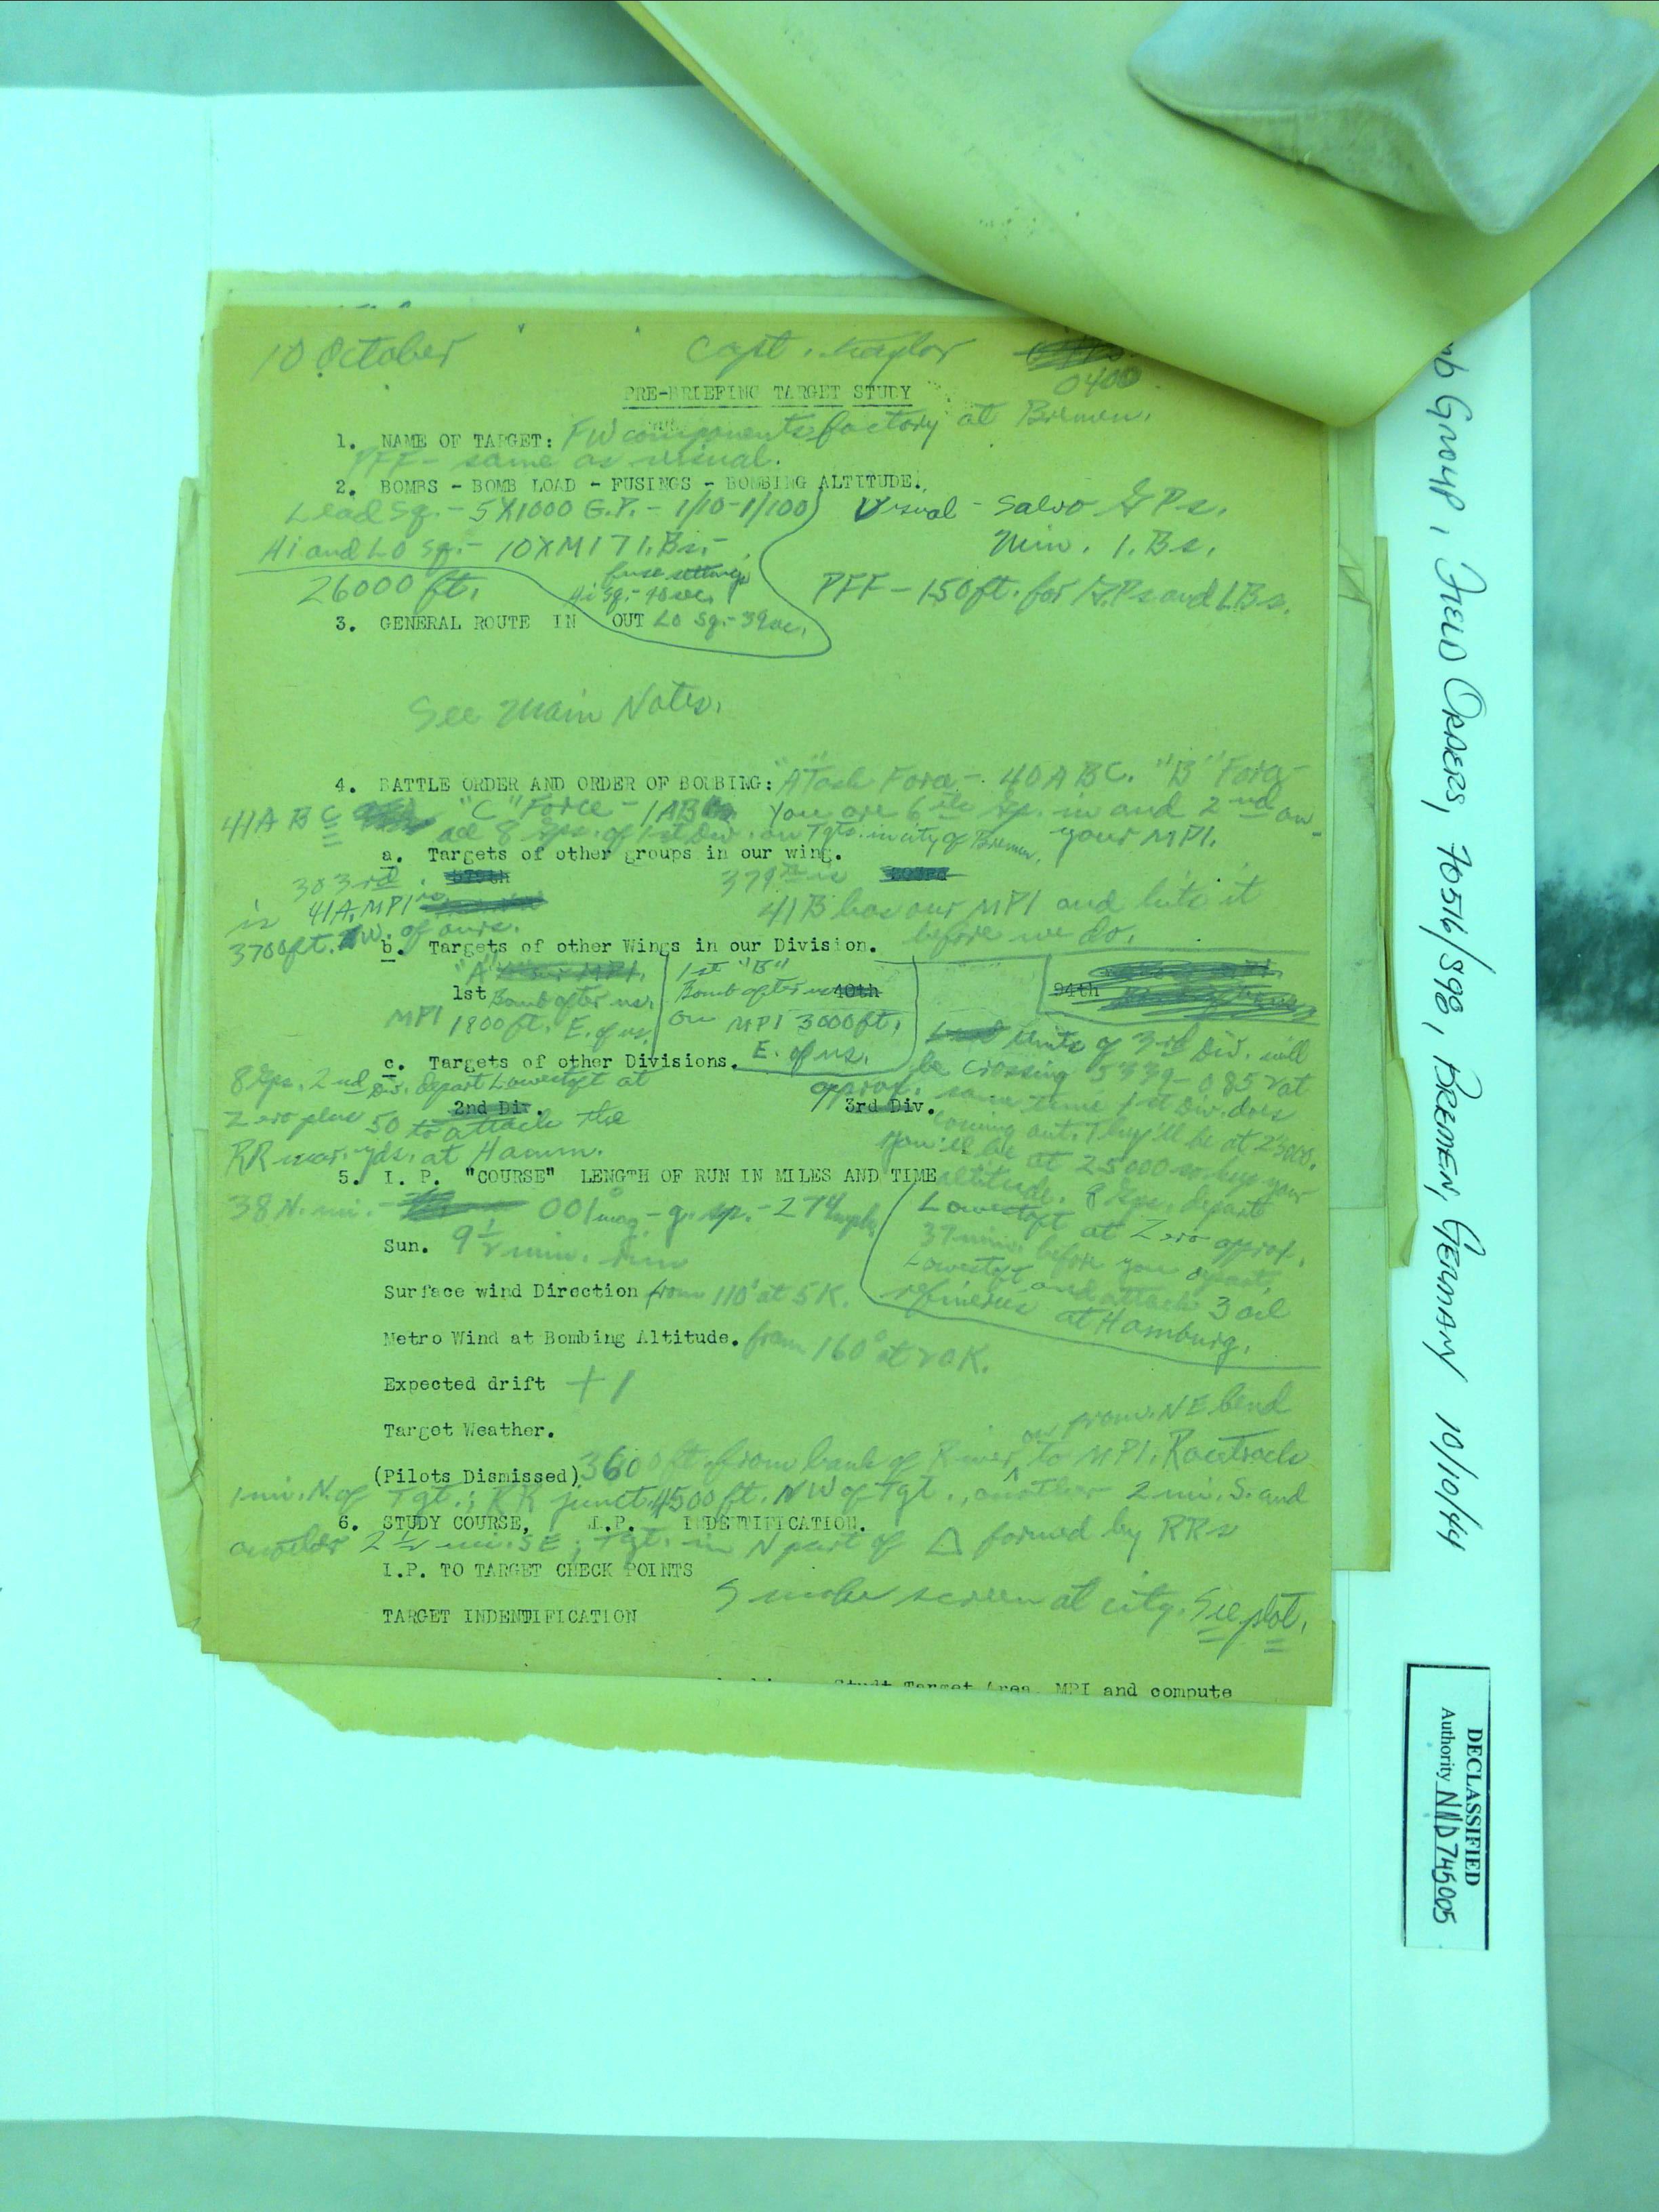 10 October Capt. Naylor
0400
PRE-BRIEFING TARGET STUDY
1. NAME OF TARGET: FW components factory at Bremen.
PFF - same as visual.
2. BOMBS - BOMB LOAD - FUSINGS - BOMBING ALTITUDE.
Lead Sq. - 5X1000 G.P. - 1/10-1/100 Visual - Salvo G.P.s.
Hi and LO Sq. - 10XM17 I.Bs. - Min. I.Bs.
fuse settings
26000 ft. Hi Sq. - 40 sec. PFF - 150 ft. for G.P.s and I.B.s.
3. GENERAL ROUTE IN OUT LO Sq. - 39 sec.
See Main Notes.
4. BATTLE ORDER AND ORDER OF BOMBING: "A" Task Force - 40 A B C. "B" Force -
41 A B C "C" Force - 1 A B You are 6th Gp. in and 2nd on
all 8 Gps. of 1st Div. on Tgts. in city of Bremen. your MPI.
a. Targets of other groups in our wing.
303rd 379th is
is 41A. MPI is 41B has our MPI and hits it
3700 ft. W. of ours. before we do.
b. Targets of other Wings in our Division.
"A" 1st "B"
1st Bomb after us. Bomb after us 40th 94th
MPI 1800 ft. E. of us. on MPI 3000 ft.
E. of us.
c. Targets of other Divisions.
Units of 3rd Div. will
be crossing 5339-0852 at
approx. same time 1st Div. does
coming out. They'll be at 23000.
You'll be at 25000 so keep your
altitude. 8 Gps. depart
Lowestoft at Zero approx.
39 min. before you depart
Lowestoft and attack 3 oil
refineries at Hamburg.
8 Gps. 2nd Div. depart Lowestoft at
2nd Div. 3rd Div.
Zero plus 50 to attack the
RR mar. yds. at Hamm.
5. I. P. "COURSE" LENGTH OF RUN IN MILES AND TIME
38 N. mi. - 001° mag - g. sp. - 274 mph
Sun. 9½ min. run
Surface wind Direction from 110° at 5K.
Metro Wind at Bombing Altitude. from 160° at 20K.
Expected drift +1
Target Weather.
or from NE bend
(Pilots Dismissed) 3600 ft. from bank of River to MPI. Racetrack
1 mi. N. of Tgt.; RR junct. 4500 ft. NW of Tgt., another 2 mi. S. and
6. STUDY COURSE, I.P. INDENTIFICATION.
another 2½ mi. SE; Tgt. in N part of △ formed by RRs
I.P. TO TARGET CHECK POINTS
Smoke screen at city. See plot.
TARGET INDENTIFICATION
Study Target Area, MPI and compute
mb Group, Field Orders, 70516/898, Bremen, Germany 10/10/44
DECLASSIFIED
Authority NND745005